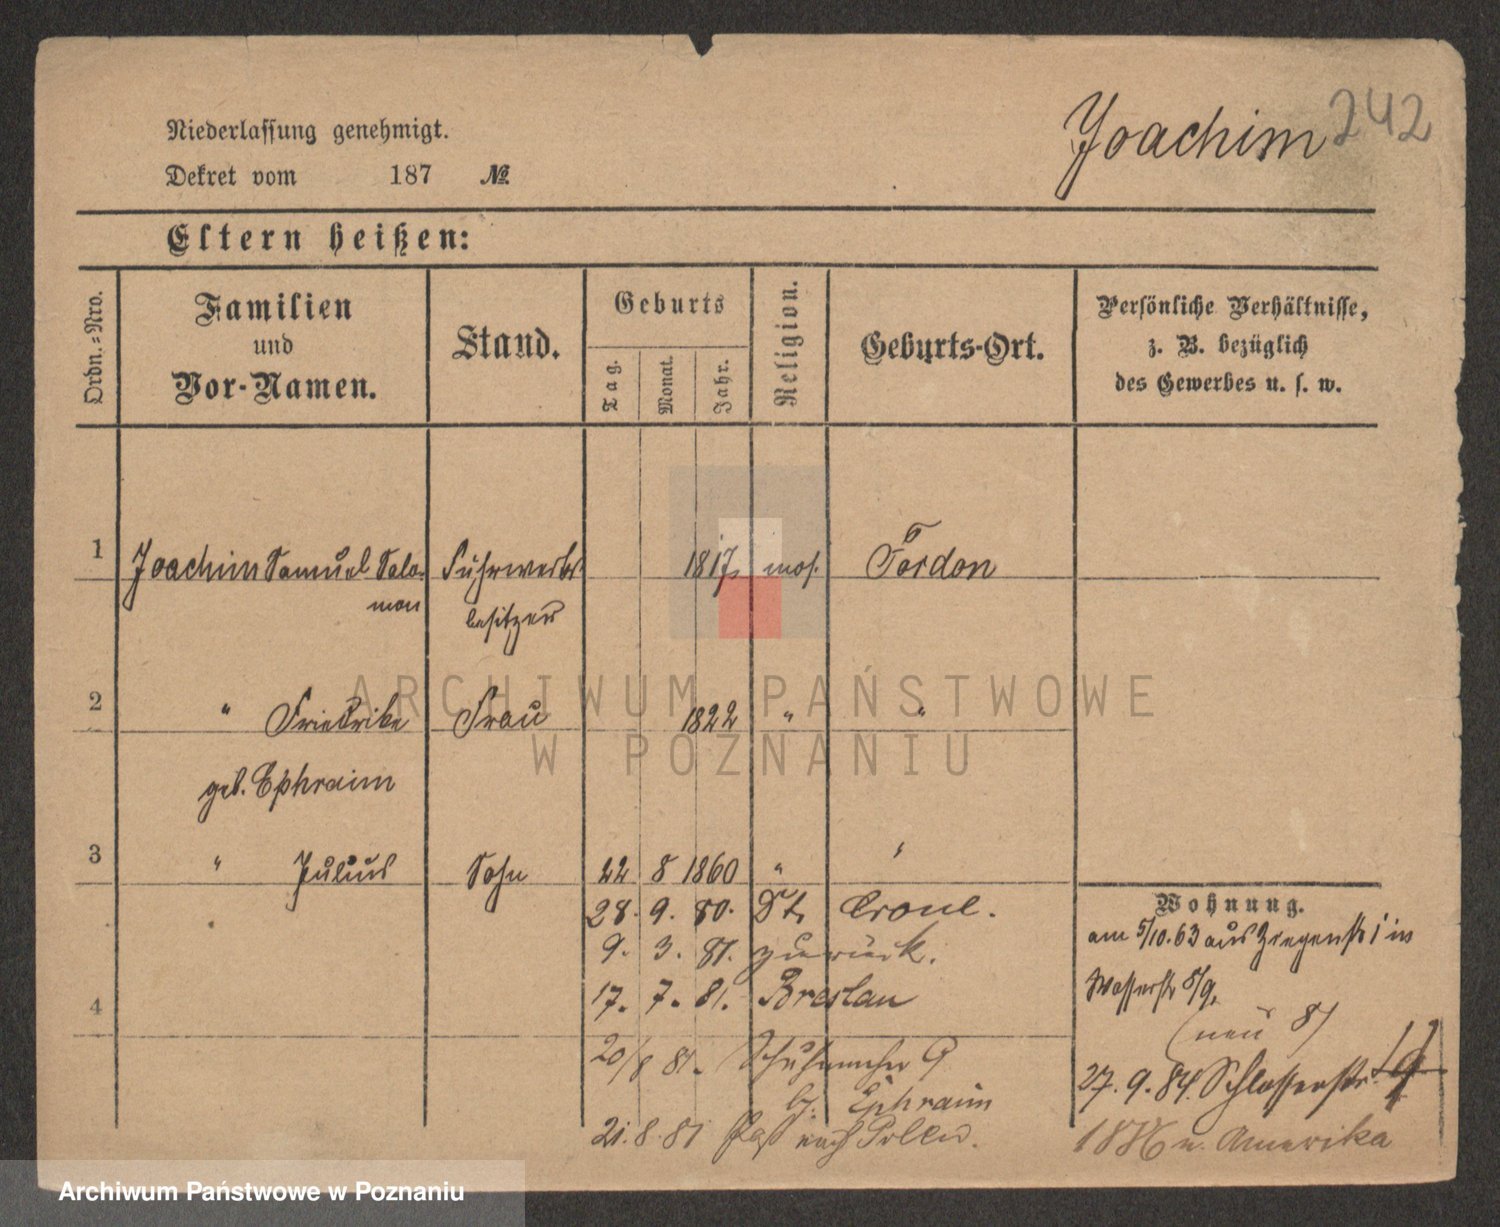 Joachim 242
Niederlassung genehmigt.
Dekret vom 187 №
Eltern heißen:
Ordn.-Nro.
Familien
und
Vor-Namen.
Stand.
Geburts
Tag.
Monat.
Jahr.
Religion.
Geburts-Ort.
Persönliche Verhältnisse,
z. B. bezüglich
des Gewerbes u. s. w.
1 Joachim Samuel Salo- Fuhrwerks 1817 mos. Fordon
mon besitzer
2 " Friedrike Frau 1822 " "
geb. Ephraim
3 " Julius Sohn 22 8 1860 "
28. 9. 80. Dt. Crone.
9. 3. 81. zurück.
4 17. 7. 81. Breslau
20/8 81. Schuhmacher 9
b. Ephraim
21. 8. 81 Paß nach Polen.
Wohnung.
am 5/10.63 aus Ziegenstr 1 in
Wasserstr 8/9,
(neu 8)
27. 9. 84. Schlosserstr.
n. Amerika
ARCHIWUM PAŃSTWOWE
W POZNANIU
Archiwum Państwowe w Poznaniu